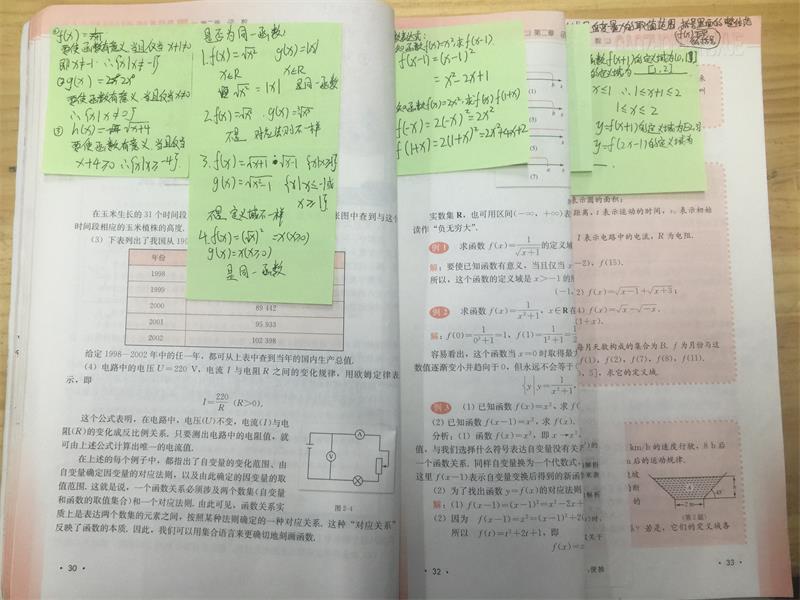 第二章 函数
要使函数有意义 当且仅当 x+1≠0
即x≠-1 ∴{x|x≠-1}
要使函数有意义 当且仅当 x≠0
∴{x|x≠0}
要使函数有意义 当且仅当
x+4≥0 ∴{x|x≥-4}
是否为同一函数
1.f(x)=√x² g(x)=|x|
x∈R x∈R
√x²=|x| 是同一函数
不是 对应法则不一样
3.f(x)=√x+1·√x-1 {x|x≥1}
g(x)=√x²-1 {x|x≤-1或
x≥1}
不是 定义域不一样
4.f(x)=(√x)²=x(x≥0)
g(x)=x(x≥0)
是同一函数
在玉米生长的31个时间段
时间段相应的玉米植株的高度
(3) 下表列出了我国从
年份
1998
1999
2000 89 442
2001 95 933
2002 102 398
给定1998—2002年中的任一年，都可从上表中查到当年的国内生产总值.
(4) 电路中的电压U=220 V，电流I与电阻R之间的变化规律，用欧姆定律表
示，即
I=220/R (R>0).
这个公式表明，在电路中，电压(U)不变，电流(I)与电
阻(R)的变化成反比例关系. 只要测出电路中的电阻值，就
可由上述公式计算出唯一的电流值.
在上述的每个例子中，都指出了自变量的变化范围、由
自变量确定因变量的对应法则，以及由此确定的因变量的取
值范围. 这就是说，一个函数关系必须涉及两个数集(自变量
和函数的取值集合)和一个对应法则. 由此可见，函数关系实
质上是表达两个数集的元素之间，按照某种法则确定的一种对应关系. 这种“对应关系”
反映了函数的本质. 因此，我们可以用集合语言来更确切地刻画函数.
A
V
图 2-4
· 30 ·
第二章 函
函数f(x)=x²,求f(x-1).
f(x-1)=(x-1)²
=x²-2x+1
函数f(x)=2x²,求f(-x) f(1+x)
f(-x)=2(-x)²=2x²
f(1+x)=2(1+x)²=2x²+4x+2
(1)
(3)
(5)
(7)
实数集R，也可用区间(-∞，+∞)表
读作“负无穷大”.
例1 求函数 f(x)=1/√x+1 的定义域
解：要使已知函数有意义，当且仅当
所以，这个函数的定义域是x>-1的
例2 求函数 f(x)=1/x²+1，x∈R在
解：f(0)=1/0²+1=1，f(1)=1/1²+1
容易看出，这个函数当x=0时取得最
数值逐渐变小并趋向于0，但永远不会等于
{y|y=1/x²+1，
例3 (1) 已知函数f(x)=x²，求f(
(2) 已知函数f(x-1)=x²，求f(x).
分析：(1) 函数f(x)=x²，即x→x²，
值，与我们选择什么符号表达自变量没有关
一个函数关系. 同样自变量换为一个代数式，
这里f(x-1)表示自变量变换后得到的新函
(2) 为了找出函数y=f(x)的对应法则
解：(1) f(x-1)=(x-1)²=x²-2x+
(2) 因为 f(x-1)=(x-1)²+2(
所以 f(t)=t²+2t+1，即
f(x)=
· 32 ·
自变量x的取值范围
函数f(x+1)的定义域为[0,1]
的定义域为 [1,2]
x≤1 ∴1≤x+1≤2
1≤x≤2
y=f(2x-1)的定义域为
表示圆的面积；
距离，t表示运动的时间，v₀表示初始
I表示电路中的电流，R为电阻.
-2)，f(15).
2) f(x)=√x-1+√x+3；
4) f(x)=√x-√-x.
(1+x).
每月天数构成的集合为B，f为月份与这
f(1)，f(2)，f(7)，f(8)，f(11).
，5]，求它的定义域.
km/h的速度行驶，8 h后
后的运动规律.
45°
2 m
(第2题)
若是，它们的定义域各
· 33 ·